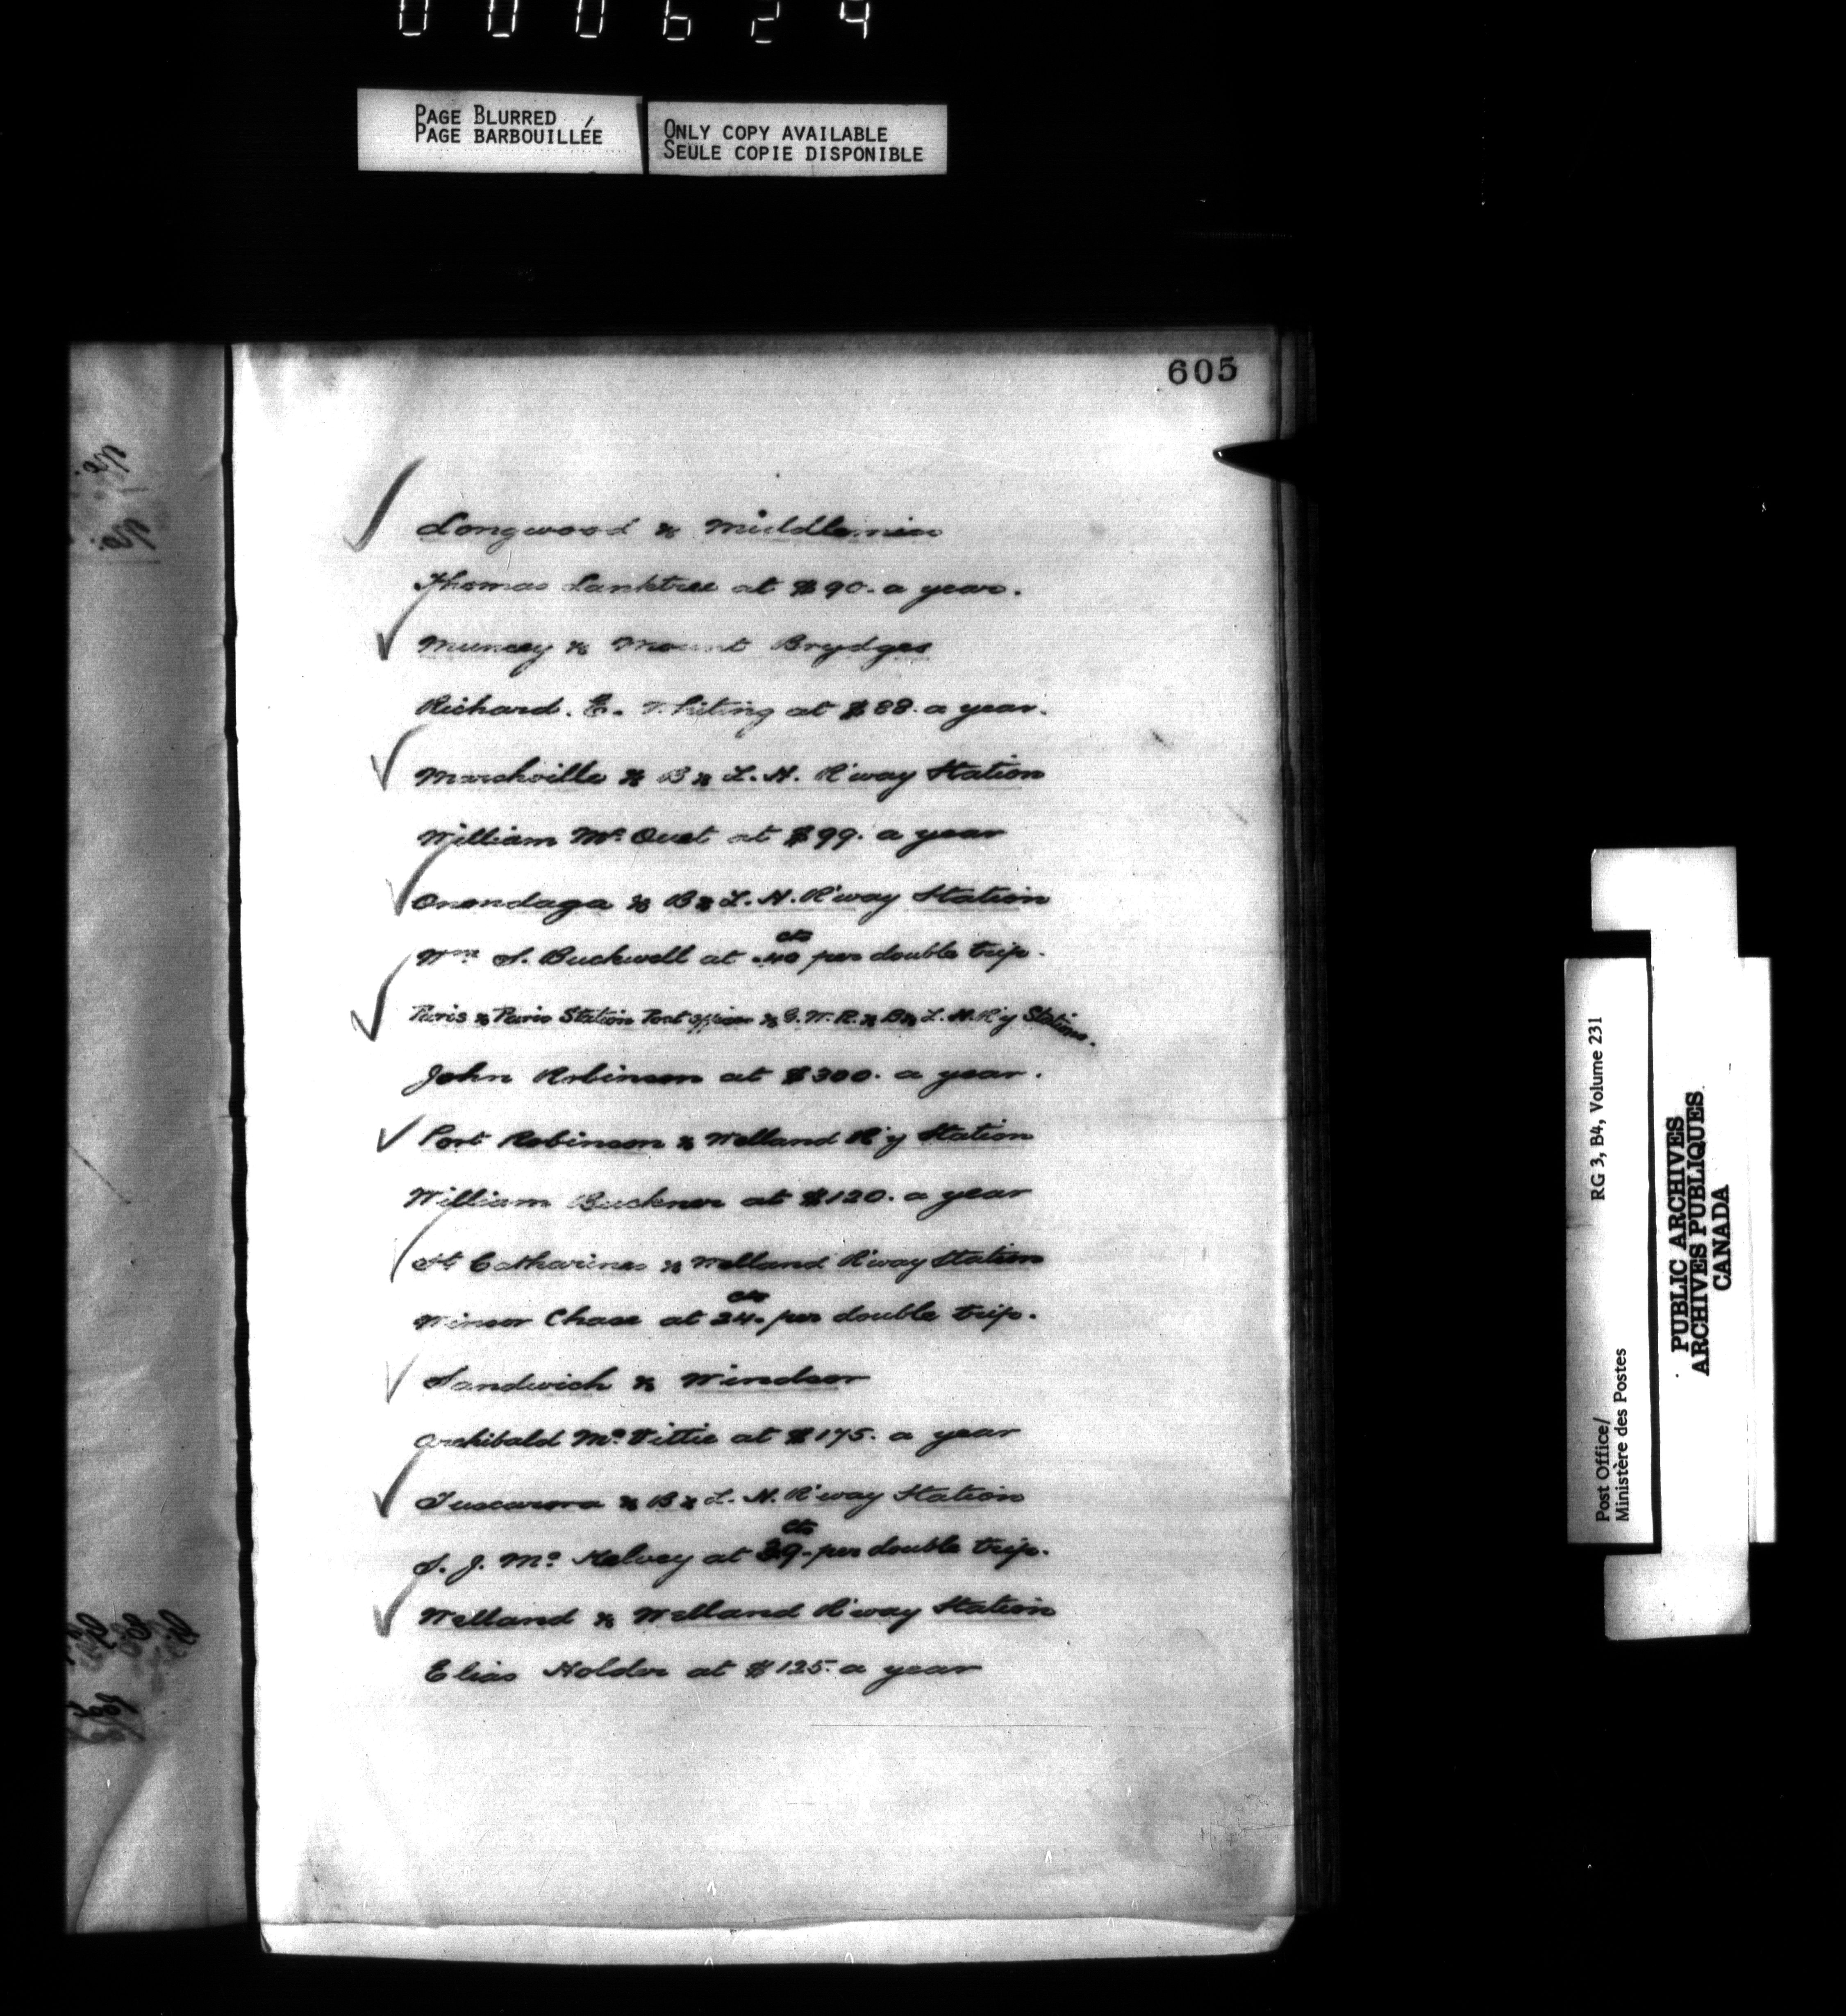 000624
PAGE BLURRED
PAGE BARBOUILLÉE
ONLY COPY AVAILABLE
SEULE COPIE DISPONIBLE
605
Longwood & Middlemiss
Thomas Lanktree at $90. a year.
Muncey & Mount Brydges
Richard. E. Whiting at $88. a year.
Marshville & B & L. H. R'way Station
William Mc Quet at $99. a year
Onondaga & B & L. H. R'way Station
Wm S. Buckwell at .40 cts per double trip.
Paris & Paris Station Post offices & G. W. R. & B & L. H. R'y Stations.
John Robinson at $300. a year.
Port Robinson & Welland R'y Station
William Buckner at $120. a year
St Catharines & Welland R'way Station
Minor Chase at 24. cts per double trip.
Sandwich & Windsor
Archibald Mc Vittie at $175. a year
Tuscarora & B & L. H. R'way Station
S. J. Mc Kelvey at 39 cts per double trip.
Welland & Welland R'way Station
Elias Holder at $125. a year
Post Office/
Ministère des Postes
RG 3, B4, Volume 231
PUBLIC ARCHIVES
ARCHIVES PUBLIQUES
CANADA